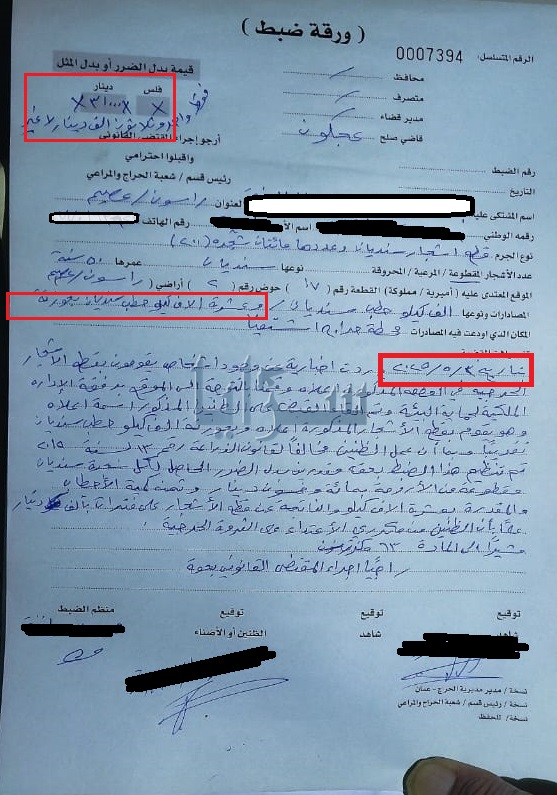 ( ورقة ضبط )
الرقم المتسلسل: 0007394
قيمة بدل الضرر أو بدل المثل
محافظ /
فلس دينار
متصرف /
X ٣١٠٠٠ X
فقط
مدير قضاء /
واحد وثلاثون الف دينار لا غير
قاضي صلح / عجلون
أرجو إجراء المقتضى القانوني
واقبلوا احترامي
رقم الضبط
رئيس قسم / شعبة الحراج والمراعي
التاريخ
اسم المشتكى عليه العنوان راسون / عصيم
رقمه الوطني رقم الهاتف
نوع الجرم قطع اشجار سنديان وعددها مائتان شجرة (٢٠٠)
عدد الأشجار المقطوعة / المرعية / المحروقة نوعها سنديان عمرها ٥٠ سنة
الموقع المعتدى عليه ( أميرية / مملوكة ) القطعة رقم ( ١٧ ) حوض رقم ( ٢ ) أراضي ( راسون / عصيم
المصادرات ونوعها الف كيلو حطب سنديان / عشرة الاف كيلو حطب سنديان بحوزته
المكان الذي اودعت فيه المصادرات محطة حراج اشتفينا
بتاريخ وردت اخبارية عن وجود اشخاص يقومون بقطع الأشجار
الحرجية في القطعة المذكورة اعلاه وتم التوجه الى الموقع برفقة الإدارة
الملكية لحماية البيئة القبض على الظنين المذكور اسمه اعلاه
وهو يقوم بقطع الأشجار المذكورة اعلاه وبحوزته الف كيلو حطب سنديان
تقريبا وبما أن عمل الظنين مخالفاً لقانون الزراعة رقم ١٣ لسنة ٢٠١٥
تم تنظيم هذا الضبط بحقه بدل الضرر الحاصل لكل شجرة سنديان
مقطوعة من الأرومة بمائة وخمسون دينار وثمنت كمية الأحطاب
والمقدرة بعشرة الاف كيلو والناتجة عن قطع الأشجار بألف دينار
علماً بأن الظنين من مكرري الأعتداء على الثروة الحرجية
مشيراً الى المادة ٦٣
راجياً اجراء المقتضى القانوني بحقه
توقيع توقيع توقيع منظم الضبط
شاهد شاهد الظنين أو الأضناء
نسخة / مدير مديرية الحرج - عمان
نسخة / رئيس قسم / شعبة الحراج والمراعي
نسخة / للحفظ
سرايا